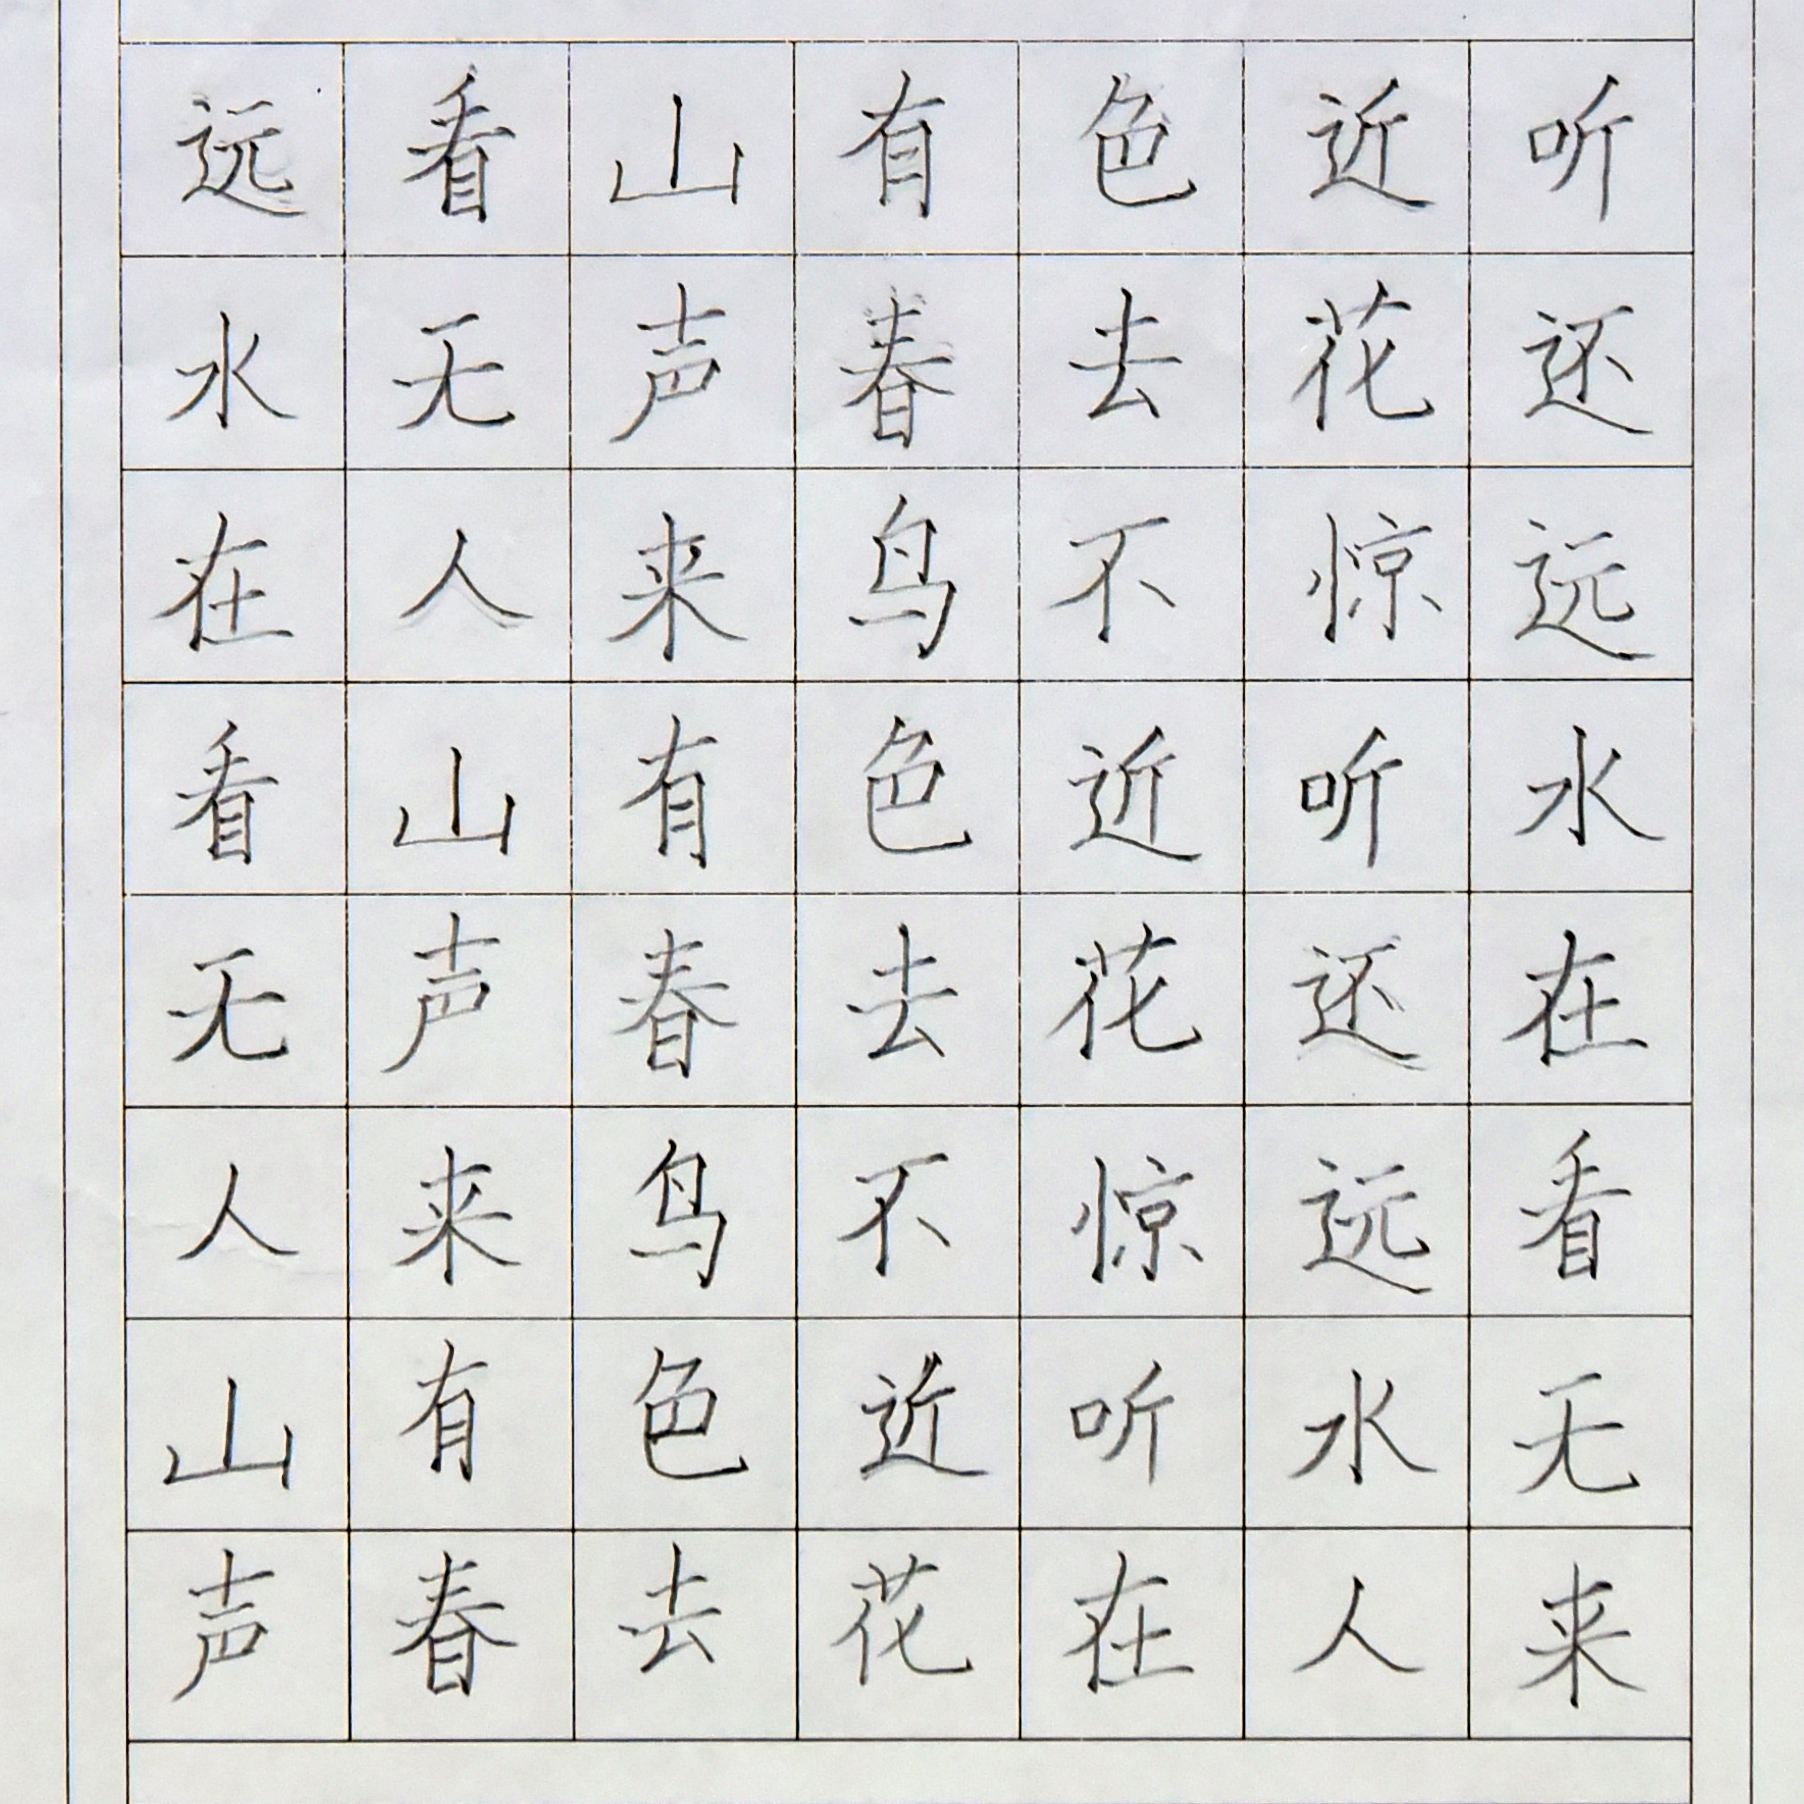 远看山有色近听
水无声春去花还
在人来鸟不惊远
看山有色近听水
无声春去花还在
人来鸟不惊远看
山有色近听水无
声春去花在人来